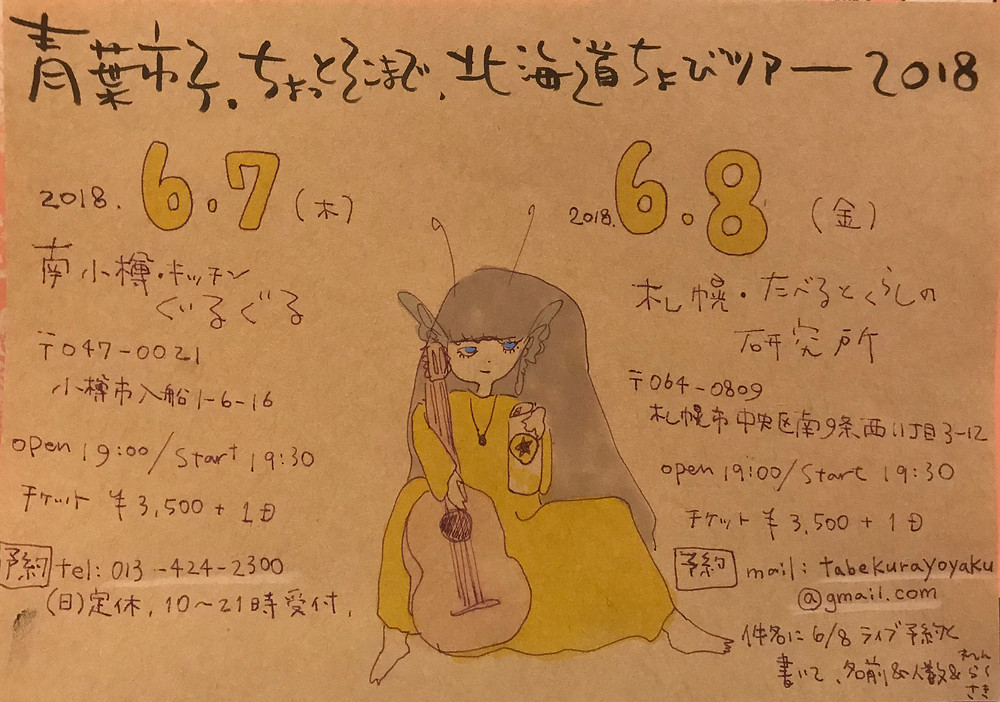 青葉市子、ちょっとそこまで、北海道ちょびツアー2018
2018. 6.7 (木)
南小樽・キッチン
ぐるぐる
〒047-0021
小樽市入船1-6-16
open 19:00/start 19:30
チケット ¥3,500+1D
予約 tel: 013-424-2300
(日)定休, 10〜21時受付,
2018. 6.8 (金)
札幌・たべるとくらしの
研究所
〒064-0809
札幌市中央区南9条西11丁目3-12
open 19:00/start 19:30
チケット ¥3,500+1D
予約 mail: tabekurayoyaku
@gmail.com
件名に6/8ライブ予約と
書いて、名前&人数&れんらくさき